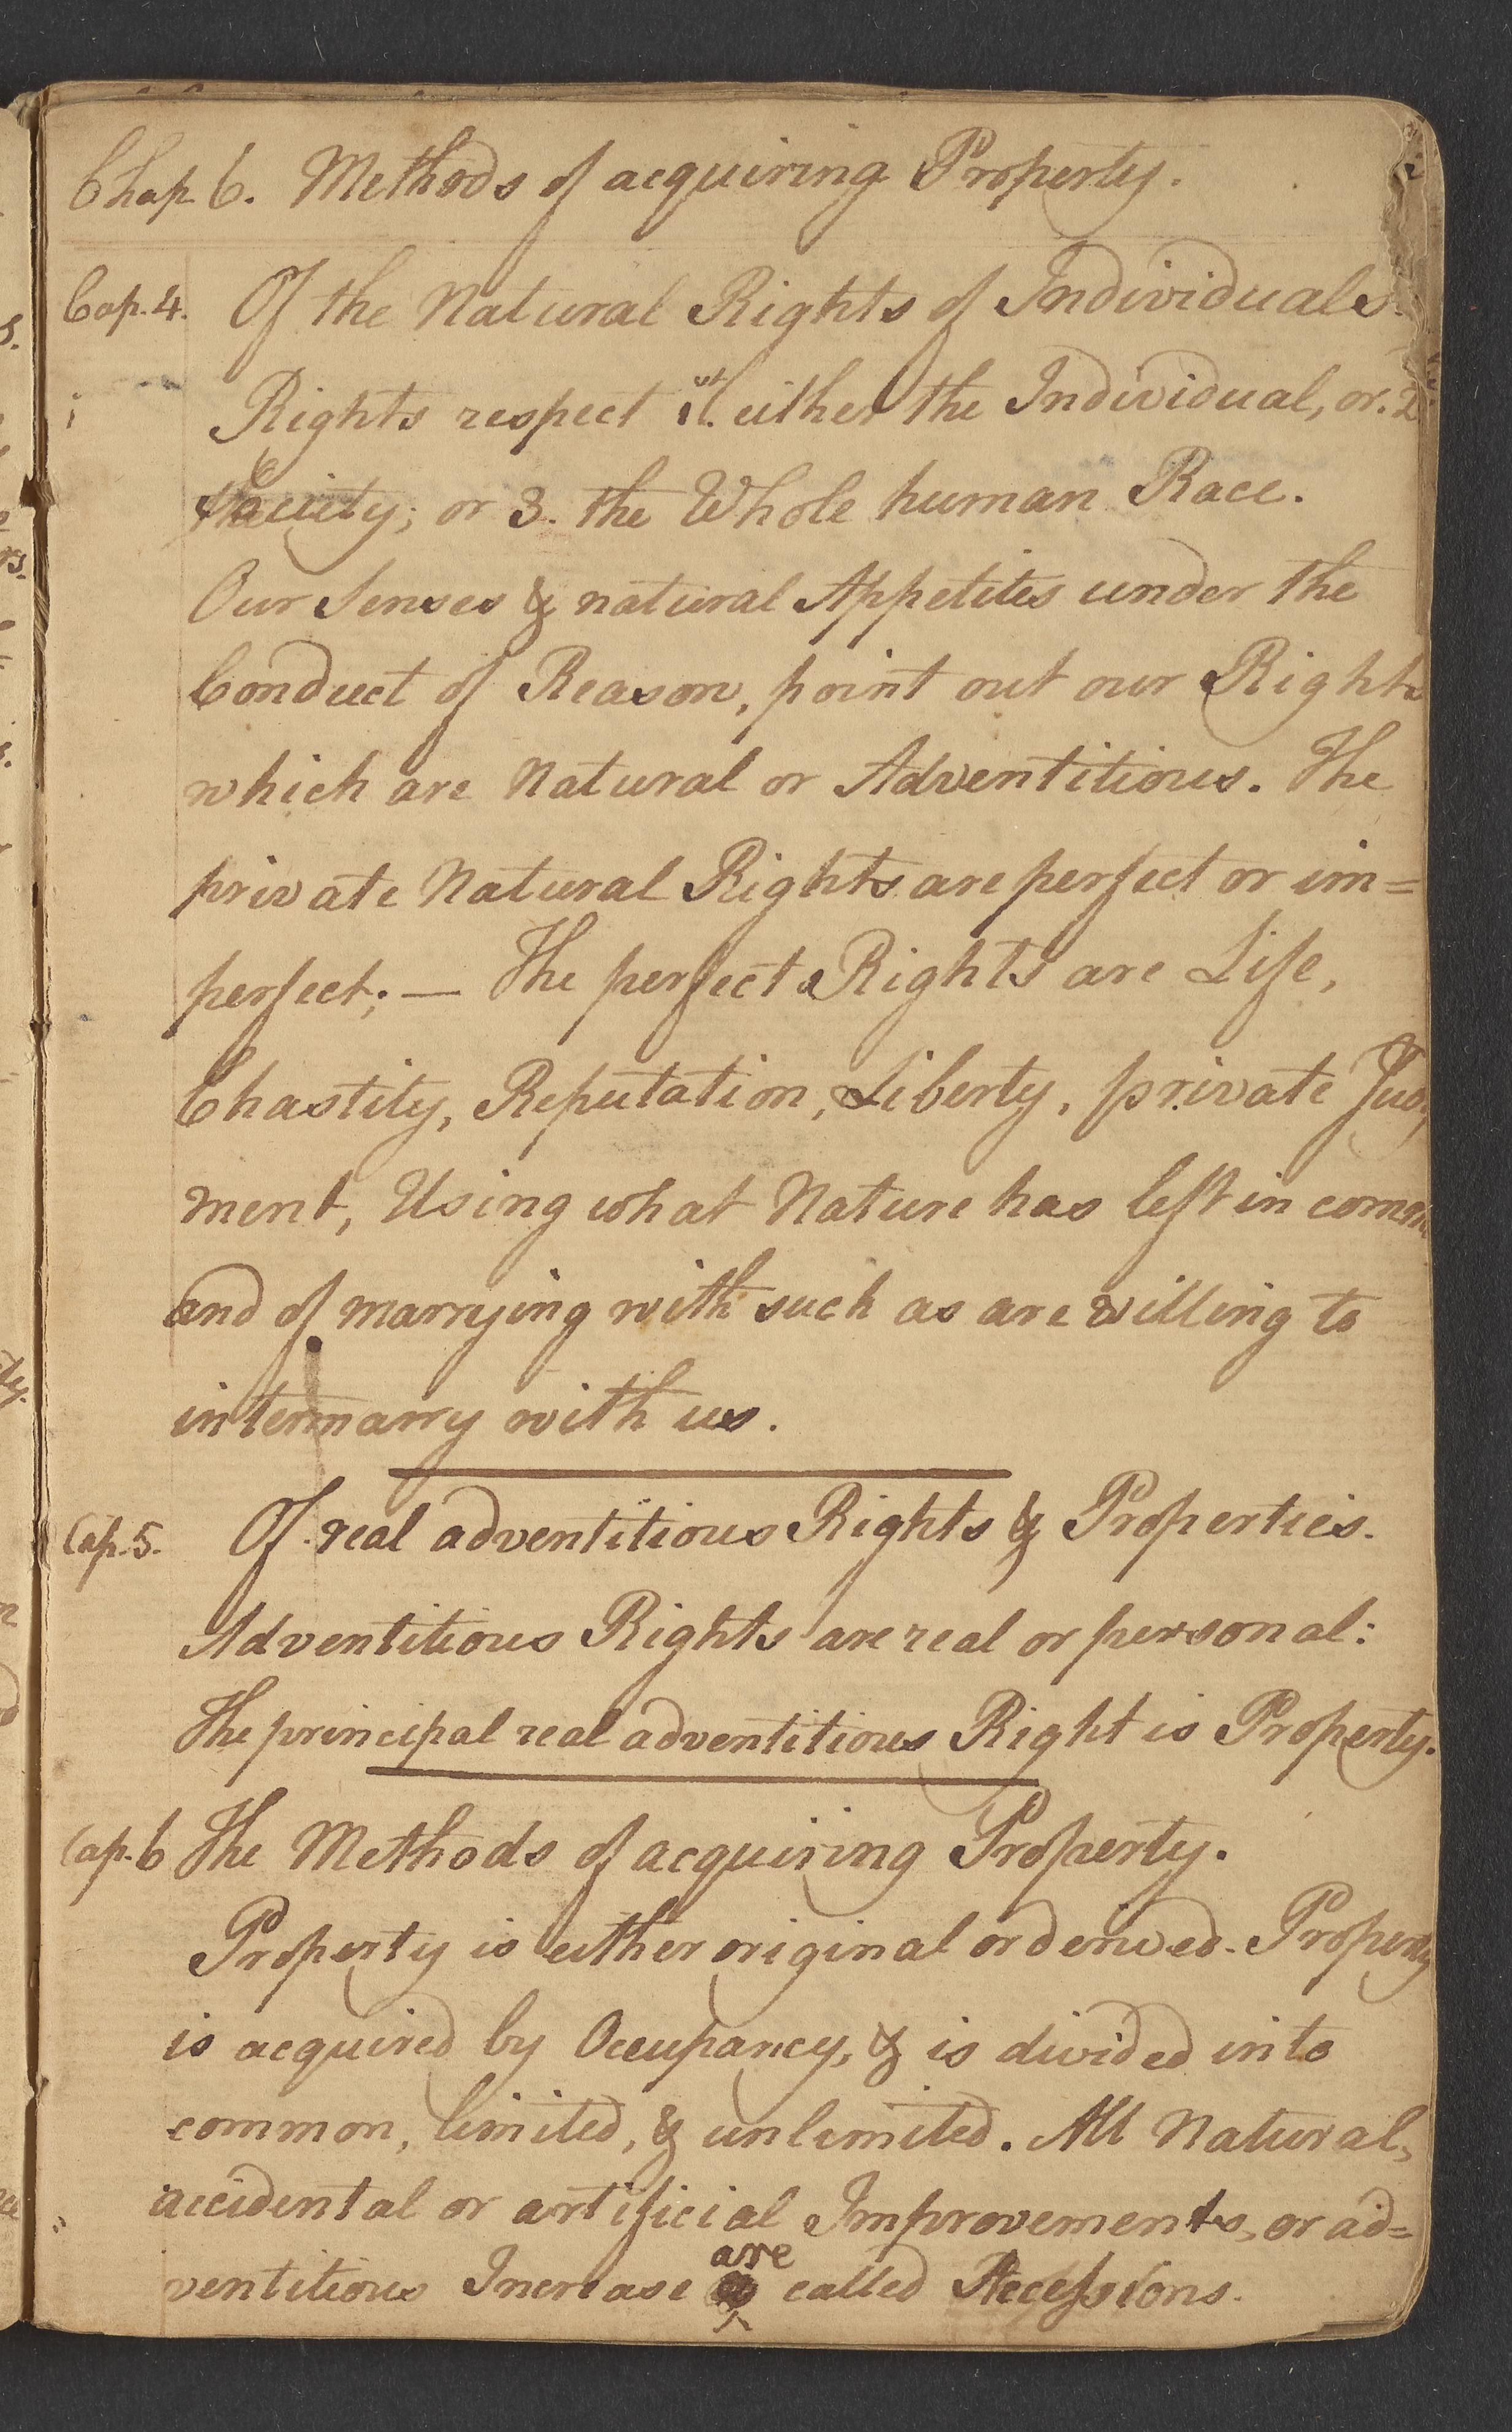 Chap. 6. Methods of acquiring Property.
Cap. 4. Of the Natural Rights of Individuals.
Rights respect 1st. either the Individual, or. 2
Society; or 3. the Whole human Race.
Our Senses & natural Appetites under the
Conduct of Reason, point out our Rights
which are Natural or Adventitious. The
private Natural Rights are perfect or im=
perfect; — The perfect Rights are Life,
Chastity, Reputation, Liberty, private Judg
ment, Using what Nature has left in common
and of marrying with such as are willing to
intermarry with us.
Cap. 5. Of real adventitious Rights & Properties.
Adventitious Rights are real or personal:
The principal real adventitious Right is Property.
Cap. 6 The Methods of acquiring Property.
Property is either original or derived. Property
is acquired by Occupancy, & is divided into
common, limited, & unlimited. All Natural,
accidental or artificial Improvements, or ad=
ventitious Increase are called Accessions.